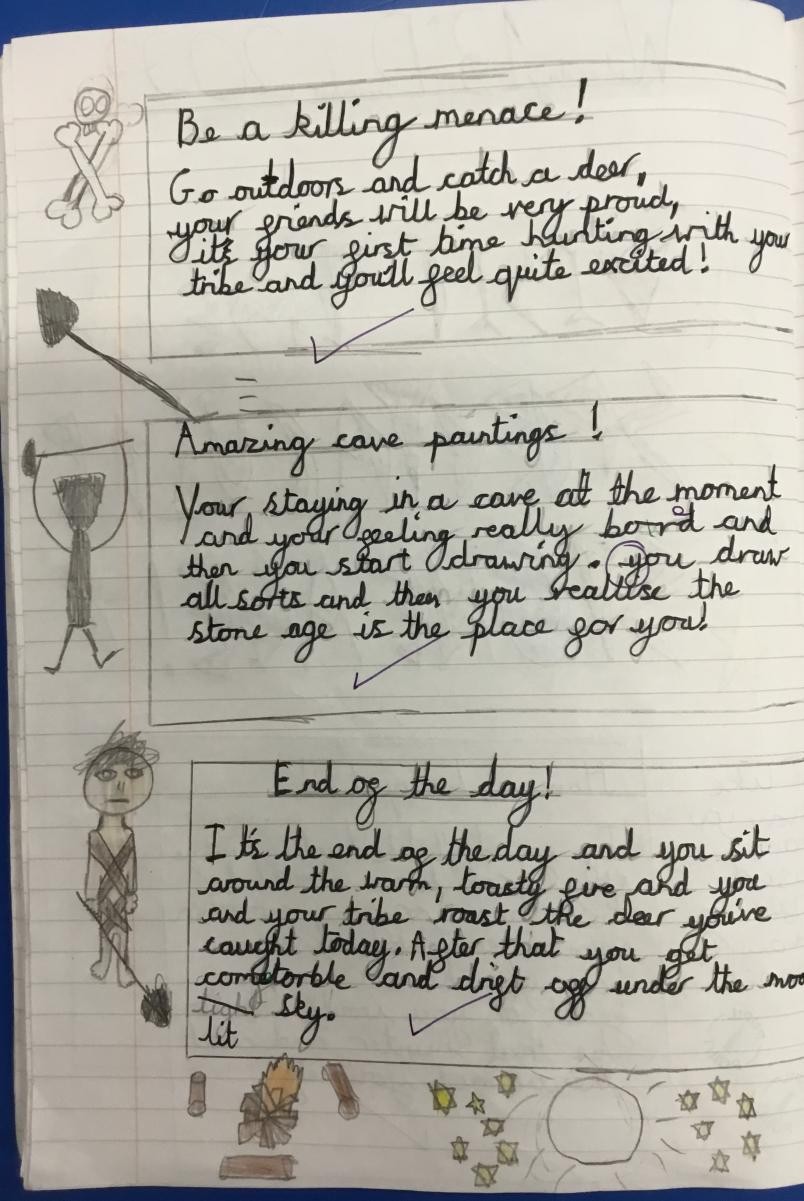 Be a killing menace!
Go outdoors and catch a deer,
your friends will be very proud,
it's your first time hunting with your
tribe and you'll feel quite excited!
Amazing cave paintings !
Your staying in a cave at the moment
and your feeling really bord and
then you start drawing. you draw
all sorts and then you realise the
stone age is the place for you!
End of the day!
It's the end of the day and you sit
around the warm, toasty fire and you
and your tribe roast the deer you've
caught today. After that you get
comftorble and drift off under the moo
sky.
lit